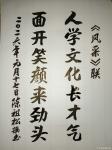 《风采》联
人学文化长才气
面开笑颜来劲头
二〇二六年元月十七日陈祖松书